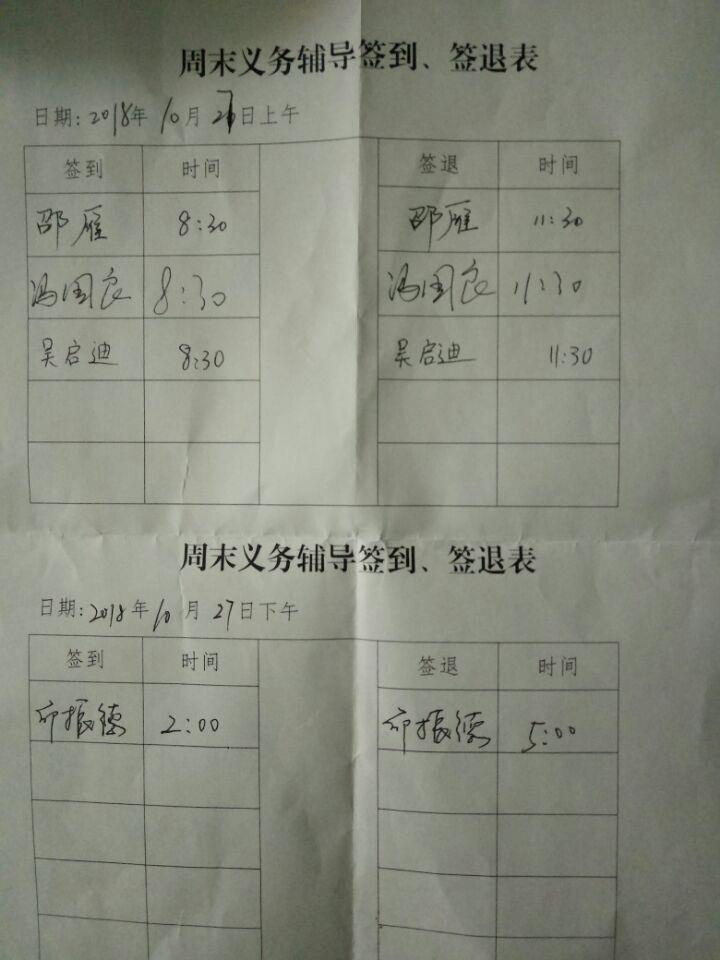 周末义务辅导签到、签退表
日期: 2018年 10月 27日上午
签到 时间 签退 时间
邵雁 8:30 邵雁 11:30
冯国良 8:30 冯国良 11:30
吴启迪 8:30 吴启迪 11:30
周末义务辅导签到、签退表
日期: 2018年 10月 27日下午
签到 时间 签退 时间
振德 2:00 振德 5:00